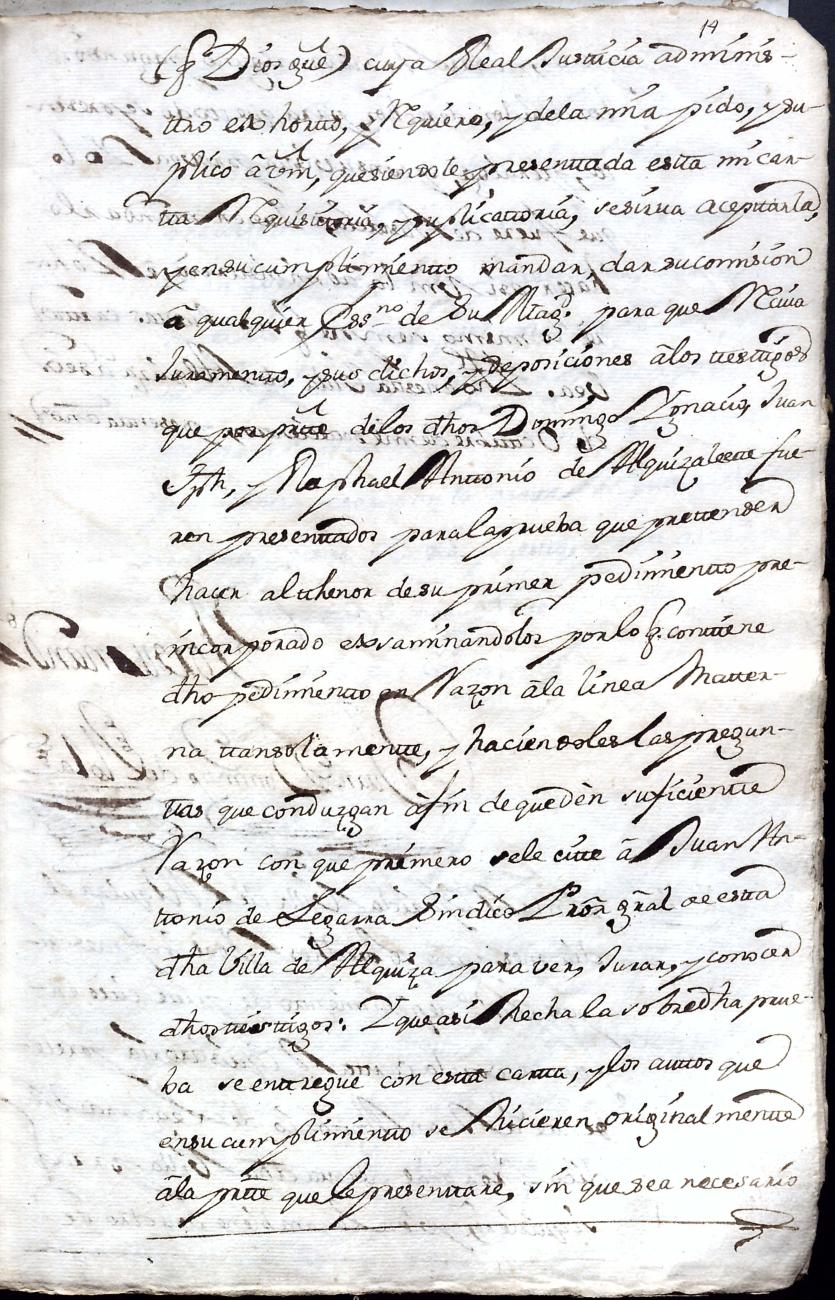 14
(q.e Dios gûe) cuya Real Justicia adminis-
ttro exhortto, y Rquiero, y dela mia pido, y su-
plico â Vm, que siendole presenttada estta mi car-
tta Rquisittoria, y suplicattoria, se sirva acepttarla,
y en su cumplimientto mandar, dar su comision
â qualquier Ess.no de Su Mag.d para que Rciva
Juramentto, y sus dichos, y deposiciones âlos testtigos
que por partte delos dhos Domingo Ygnacio, Juan
Jph, y Raphael Anttonio de Alquizalette fue-
ren presenttados para la prueba que prettenden
hacer al thenor de su primer pedimientto pre-
incorporado exsaminandolos por lo q. conttiene
dho pedimientto en Razon âla linea Matter-
na ttansolamentte, y haciendoles las pregun-
ttas que conduzgan âfin de que dèn suficientte
Razon con que primero se le citte â Juan An-
ttonio de Legarra Sindico Pror. gñal de estta
dha Villa de Alquiza para ver, Jurar, y conocer
dhos testtigos: Y que asi hecha la sobre dha prue-
ba se enttregue con estta cartta, y los auttos que
en su cumplimientto se hicieren originalmentte
âla partte que la presenttare, sin que sea necesario